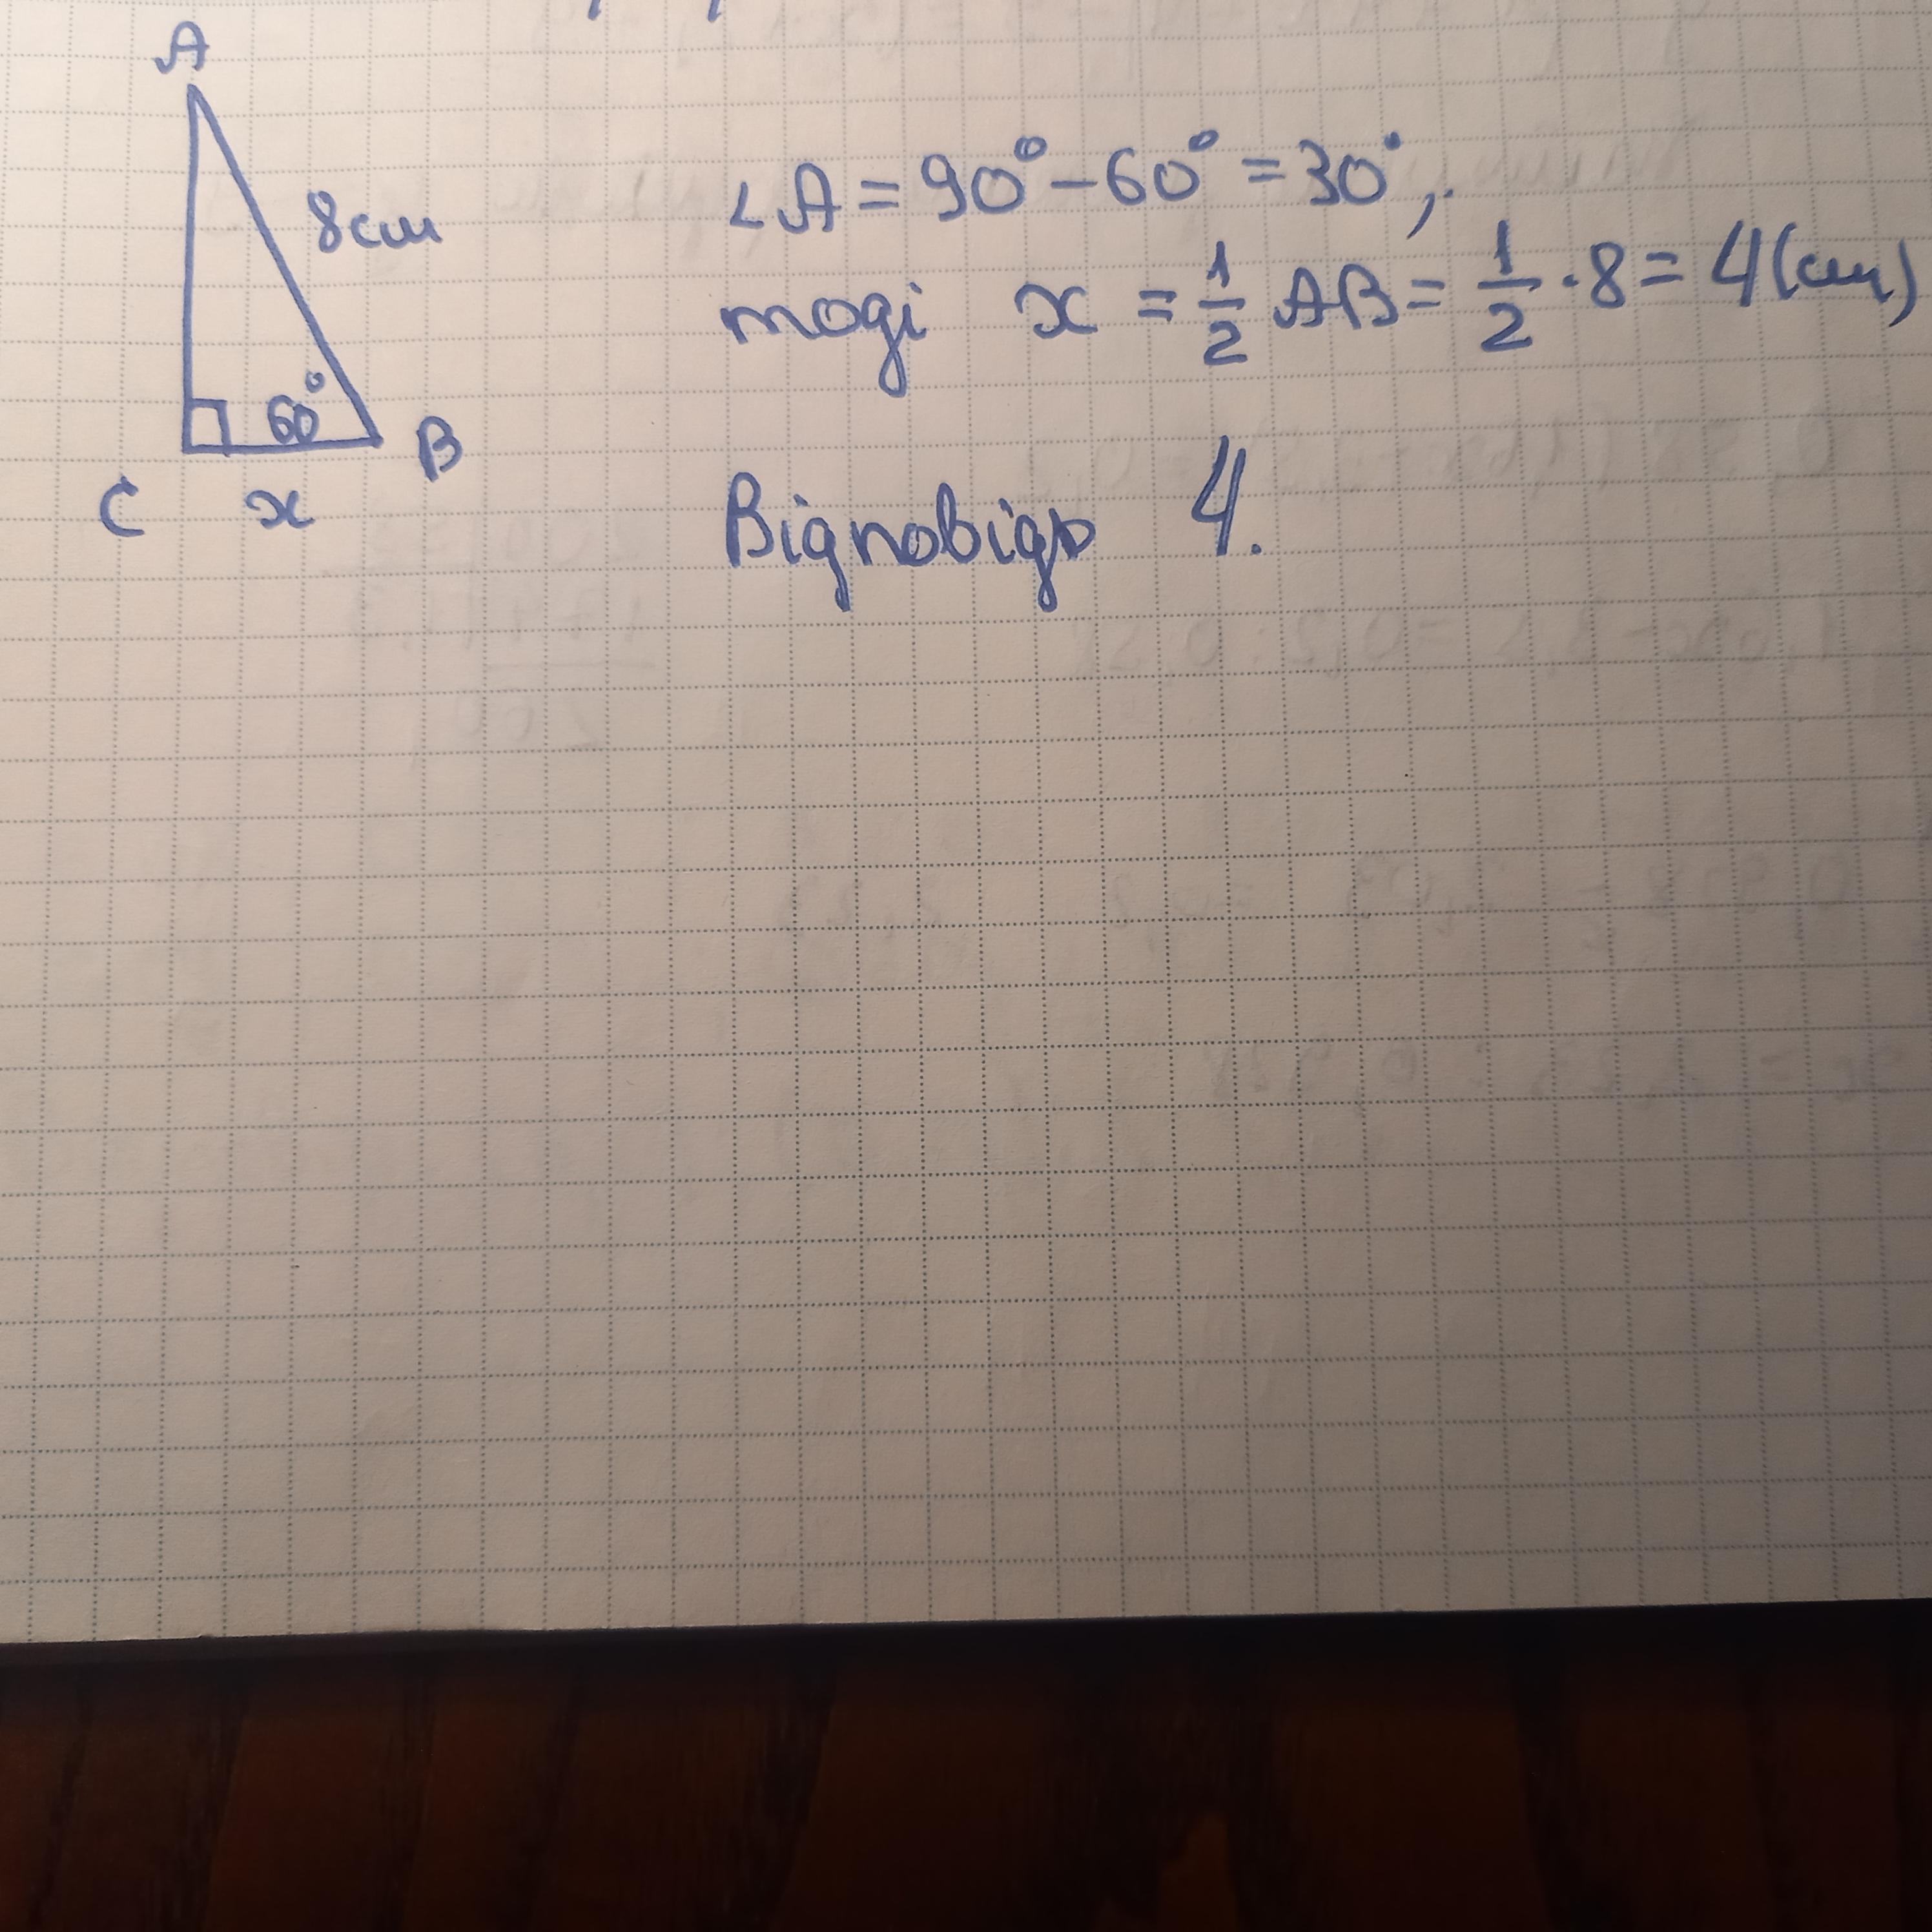 A
8см
60°
C
x
B
∠A = 90° - 60° = 30°,
тоді x = 1/2 AB = 1/2 · 8 = 4 (см)
Відповідь 4.